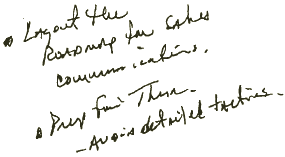 • Layout the
Roadmap for Sales
communications.
• Prep for Thur.
- Avoid detailed tactics.